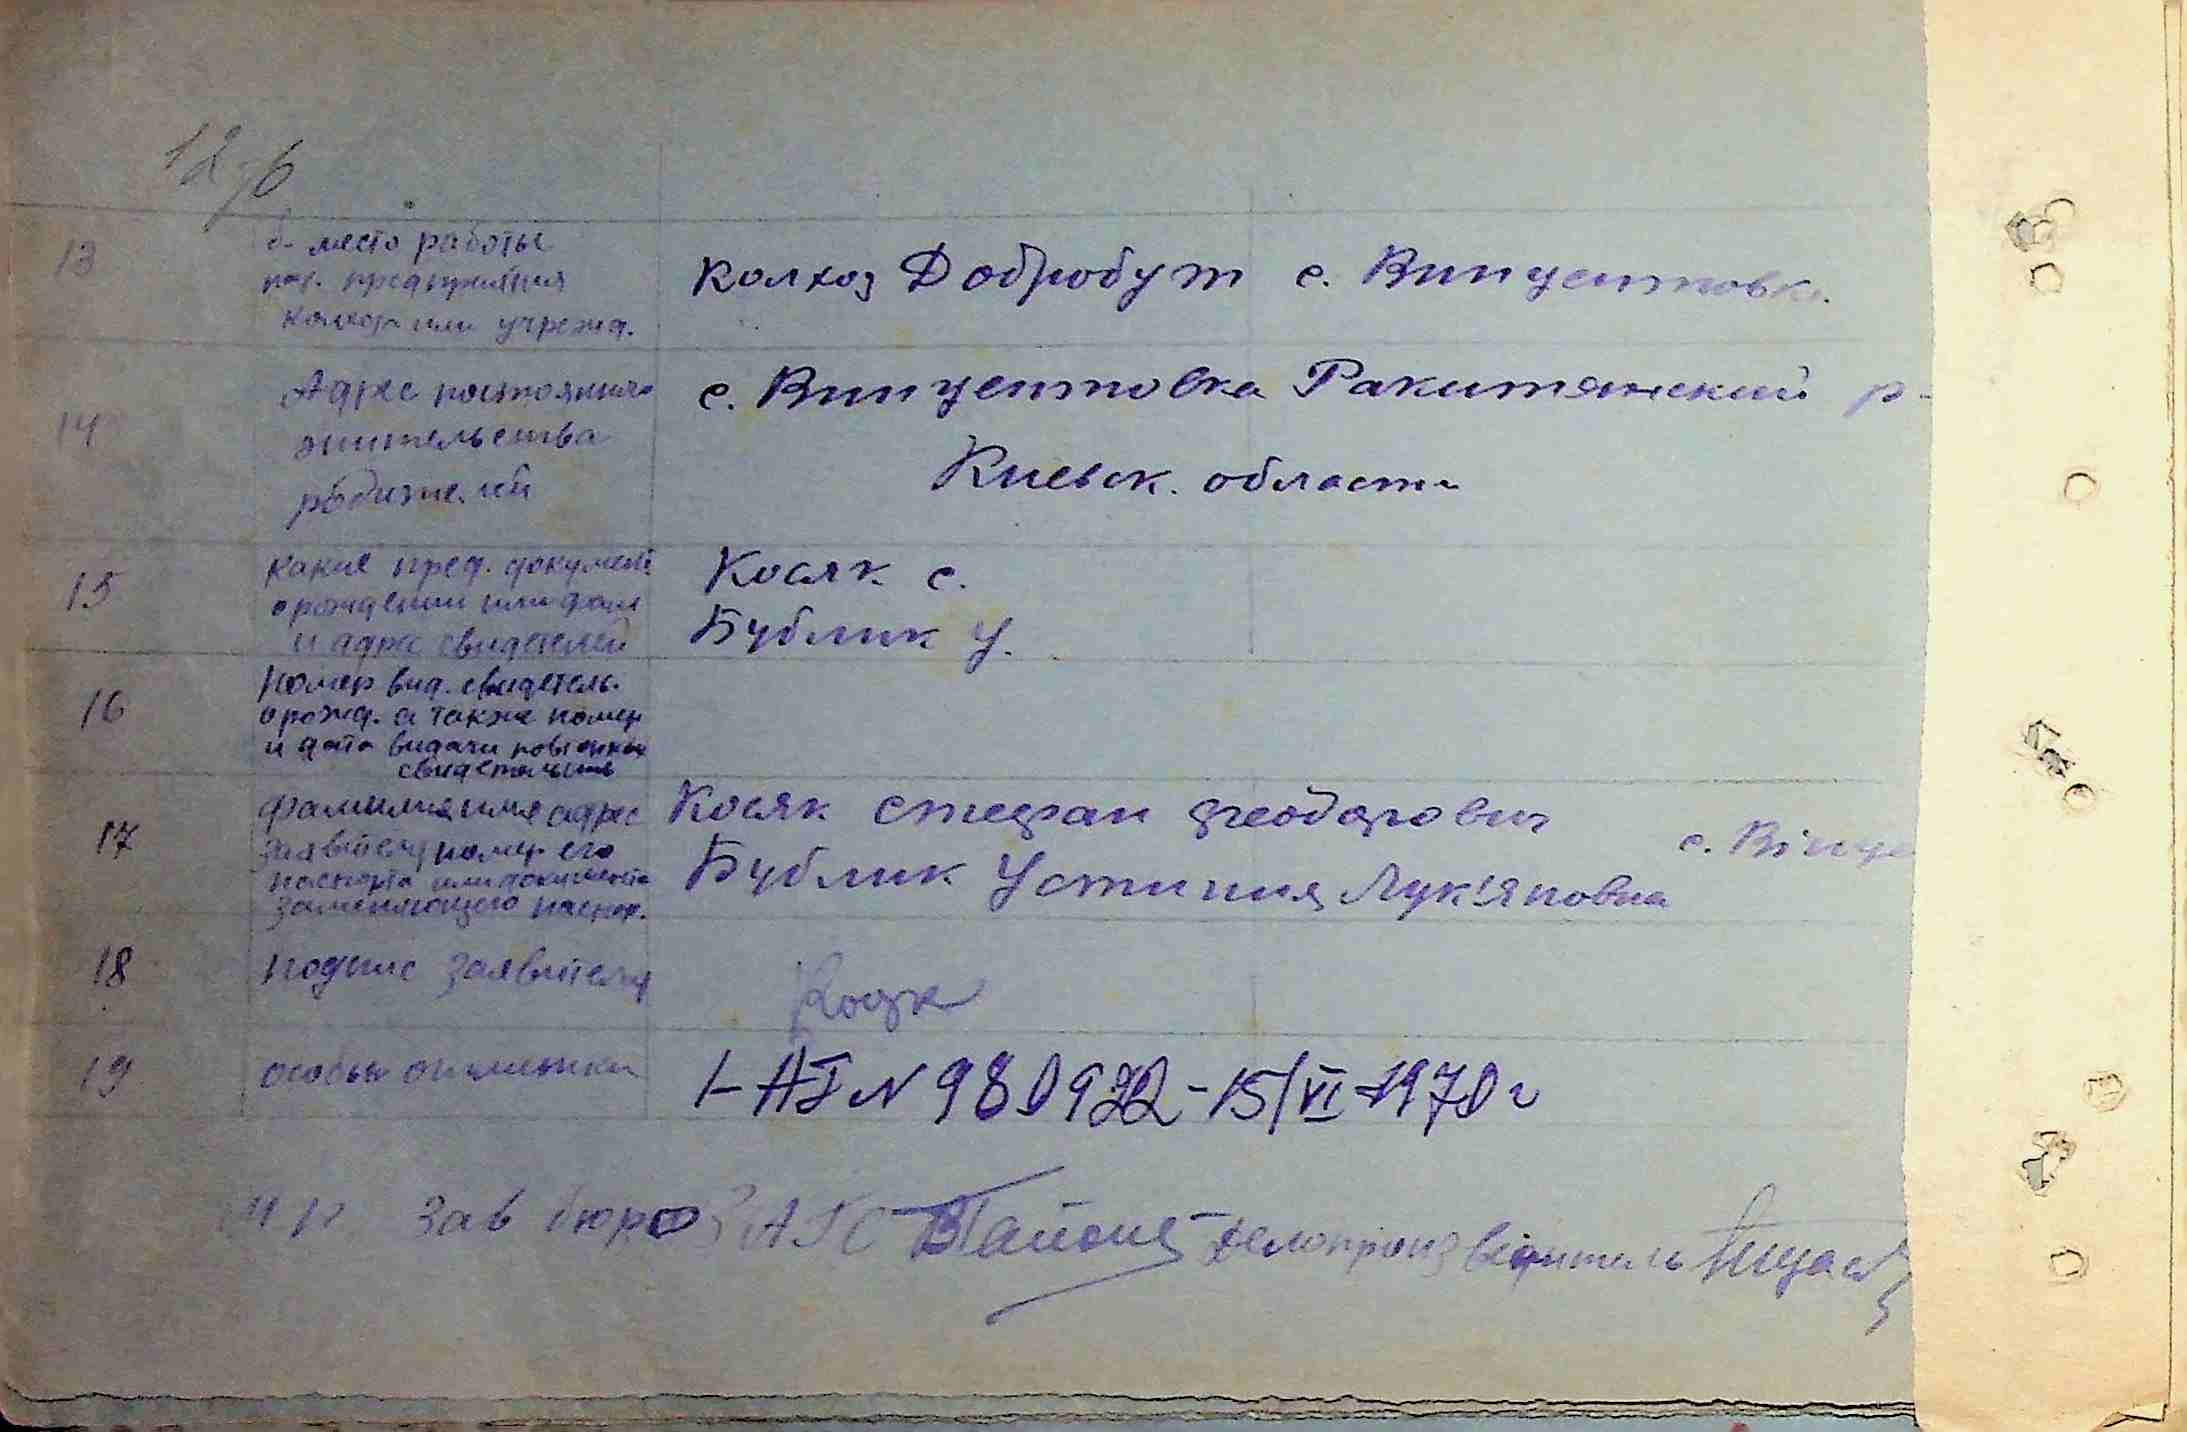 12
13 б- место работы
наз. предприятия
колхоз или учрежд.
колхоз Добробут с. Винцентовка
14 Адрес постоянного
жительства
родителей
с. Винцентовка Ракитянский р-
Киевск. области
15 какие пред. докумен
о рождении или фам
и адрес свидетелей
Косяк с.
Бублик У.
16 Номер выд. свидетель.
о рожд. а также номер
и дата видачи повторного
свидетельства
17 фамилия имя адрес
заявителя номер его
паспорта или документа
заменяющего паспор.
Косяк Стефан Феодорович
с. Вінце
Бублик Устиния Лук'яновна
18 подпис заявителя
Косяк
19 особые отметки
I-АГ N 980922-15/VI-1970 г
Зав бюро ЗАГС делопроизводитель